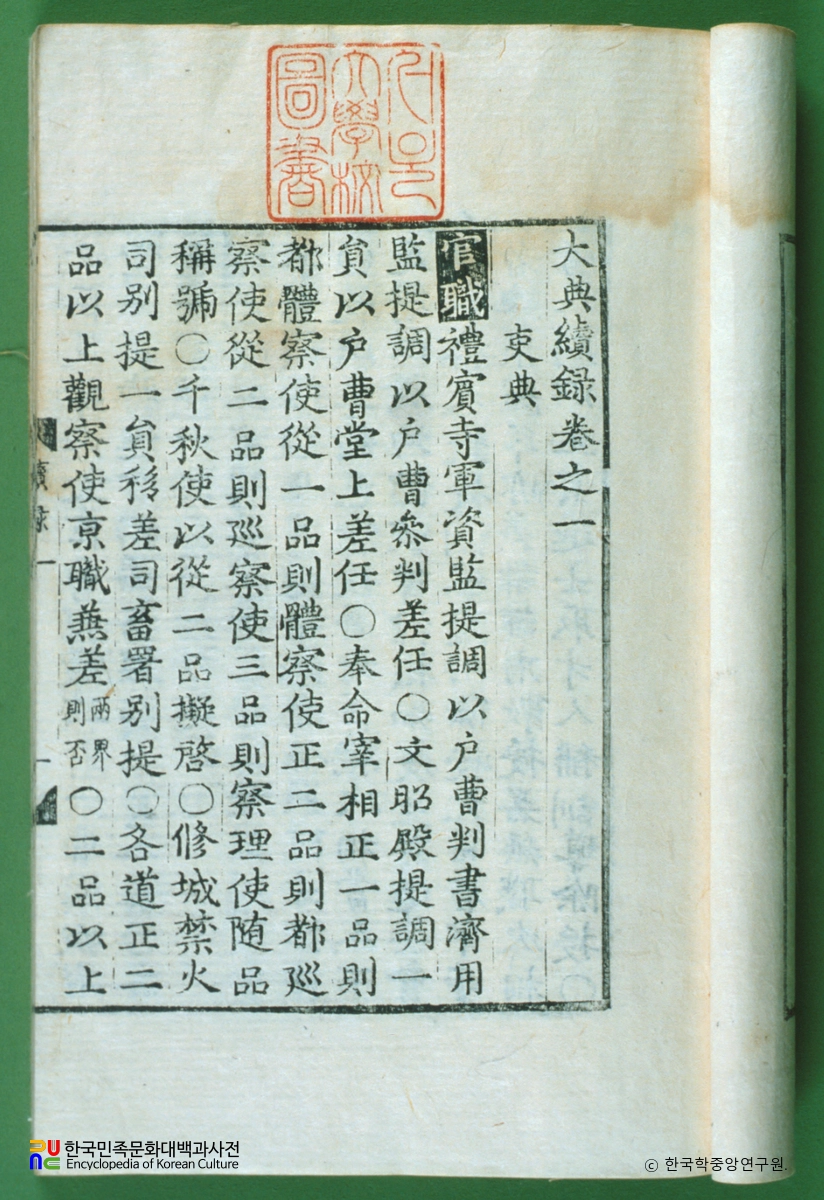 大典續録卷之一
吏典
官職 禮賓寺軍資監提調以户曹判書濟用
監提調以户曹叅判差任〇文昭殿提調一
貟以户曹堂上差任〇奉命宰相正一品則
都體察使從一品則體察使正二品則都巡
察使從二品則巡察使三品則察理使随品
稱號〇千秋使以從二品擬啓〇修城禁火
司别提一貟移差司畜署别提〇各道正二
品以上觀察使京職蕪差兩界則否〇二品以上
文學校
圖書
續録一
한국민족문화대백과사전
Encyclopedia of Korean Culture
ⓒ 한국학중앙연구원.